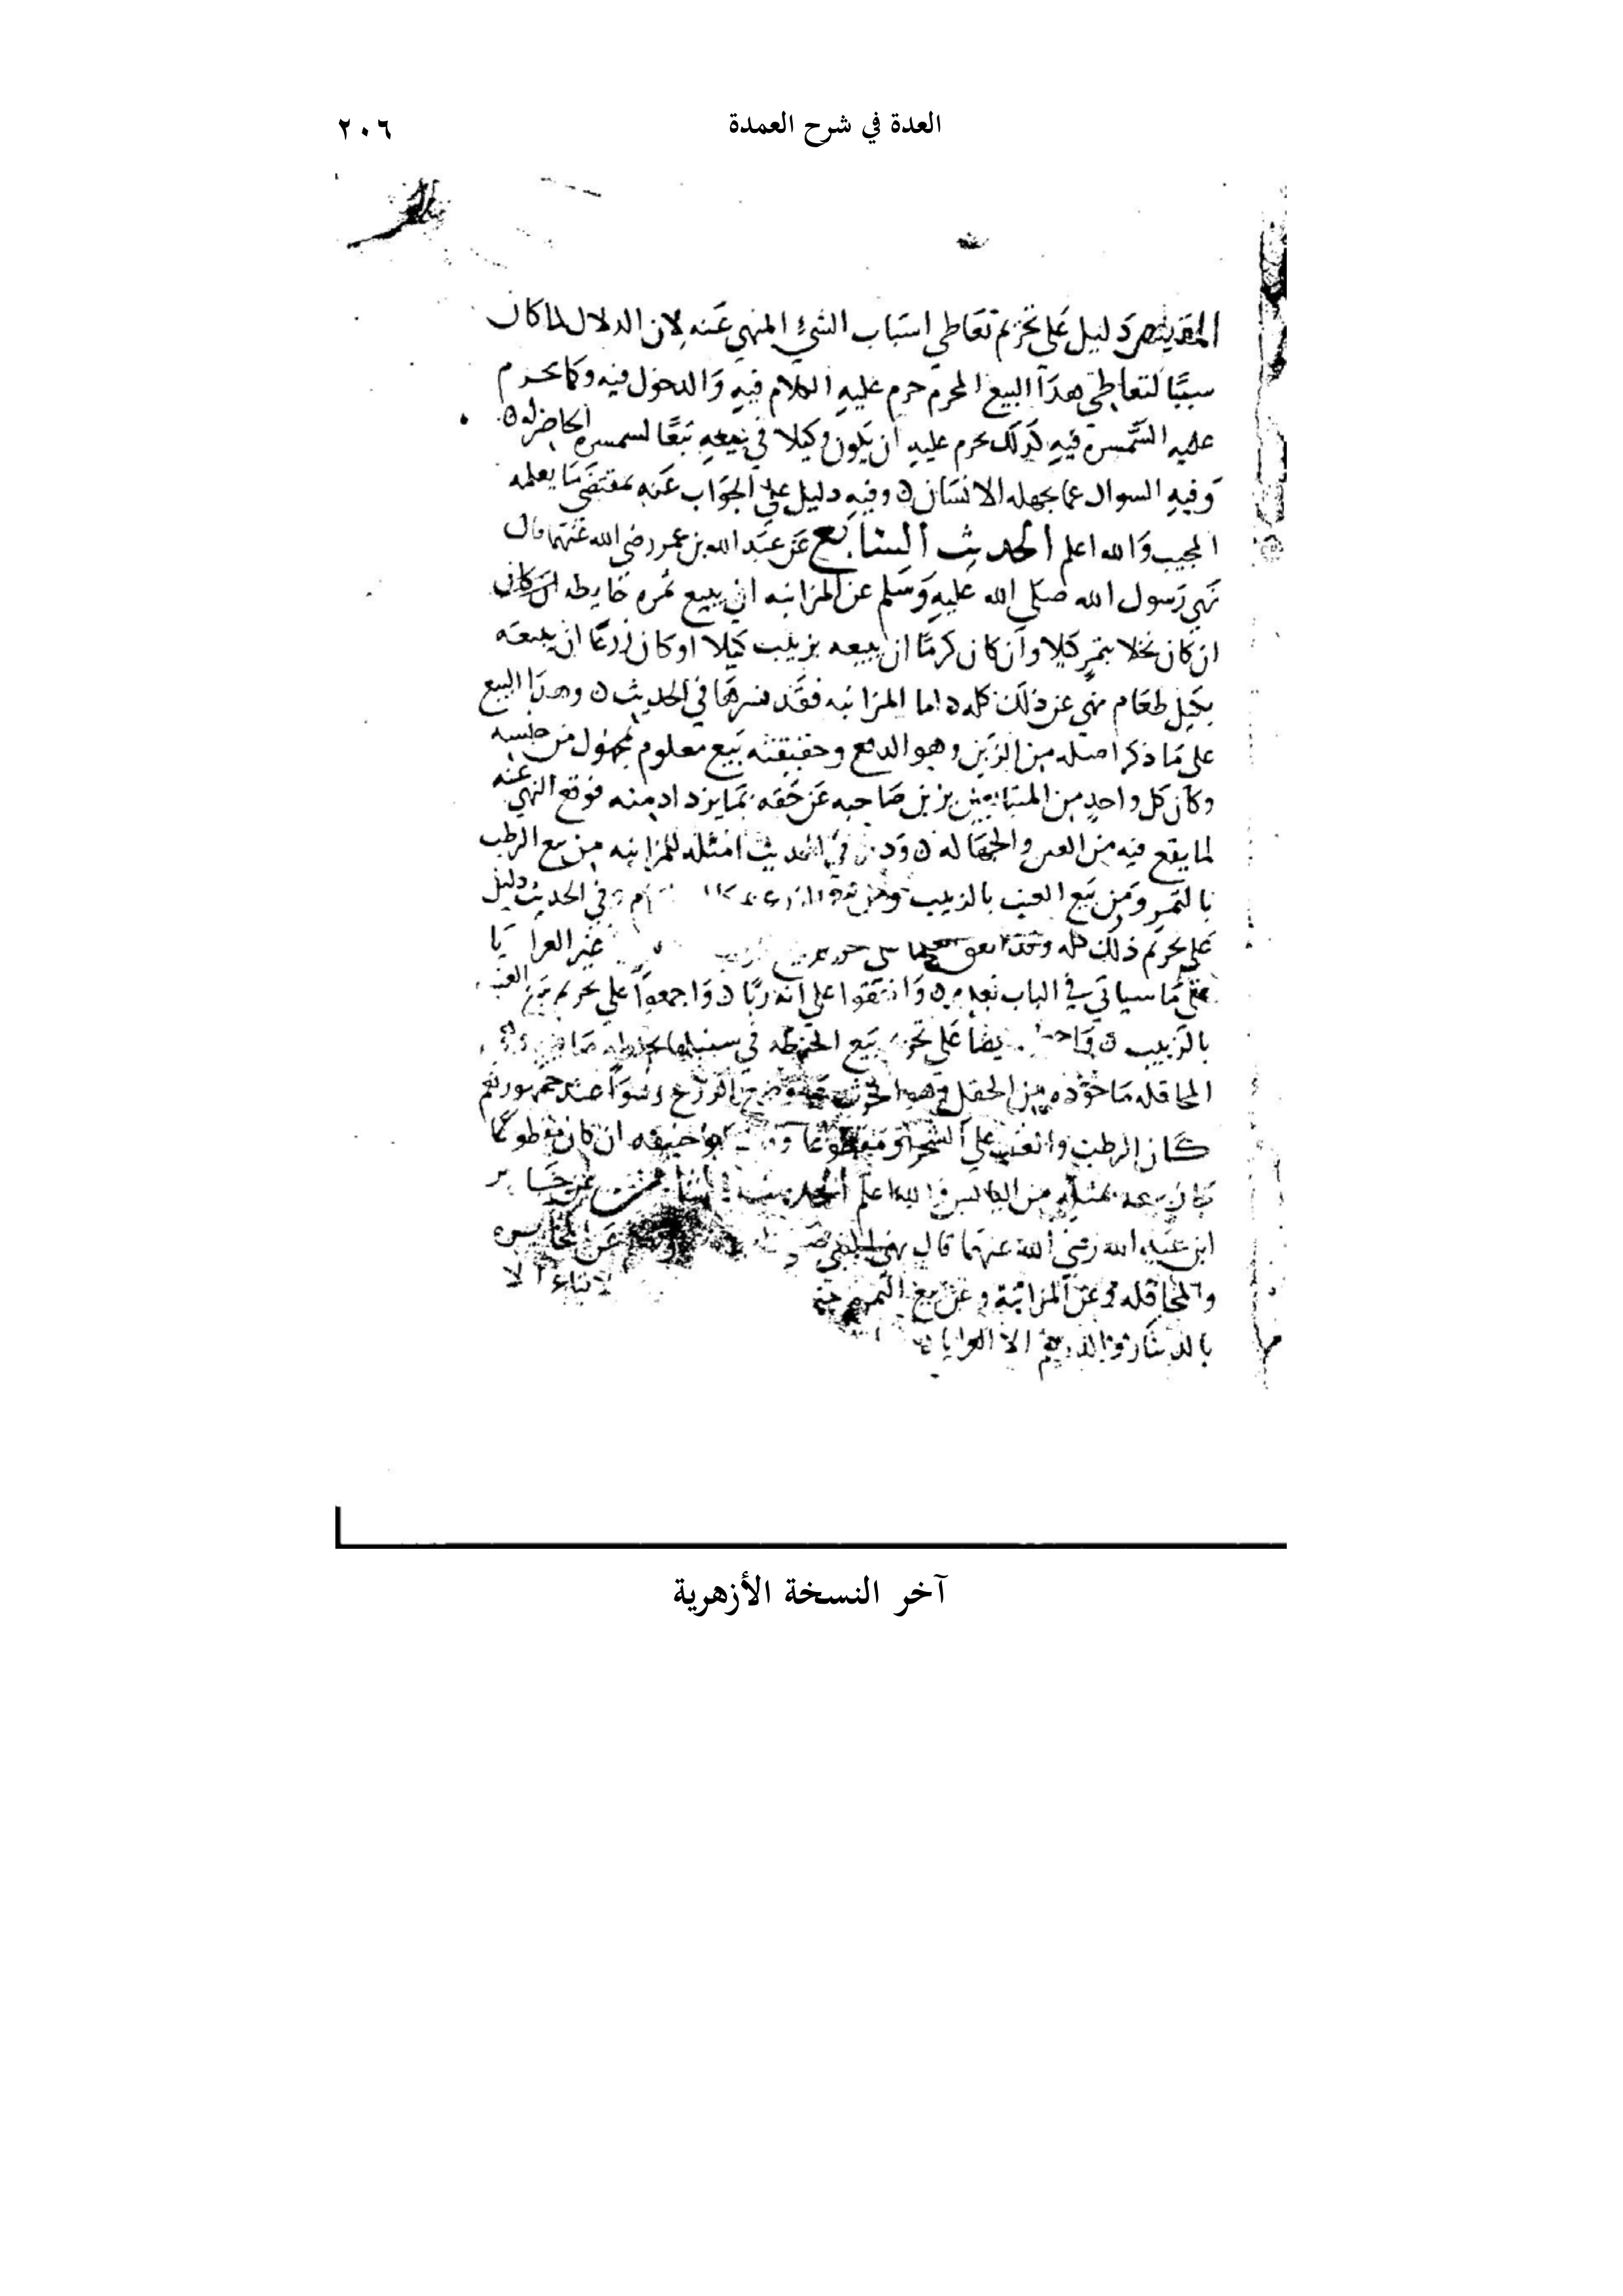 العدة في شرح العمدة
٢٠٦
دليل على تحريم تعاطي اسباب الشيء المنهي عنه لان الدلال لما كان
سببًا لتعاطي هذا البيع المحرم حرم عليه الكلام فيه والدخول فيه وكما يحرم
عليه السمسرة فيه كذلك يحرم عليه ان يكون وكيلا في بيعه تبعًا لسمسرة الحاضر له
وفيه السوال عما يجهله الانسان وفيه دليل على الجواب عنه بمقتضى ما يعلمه
المجيب والله اعلم الحديث السابع عن عبد الله بن عمر رضي الله عنهما قال
نهى رسول الله صلى الله عليه وسلم عن المزابنه ان يبيع ثمره حايطه
ان كان نخلا بتمر كيلا وان كان كرمًا ان يبيعه بزبيب كيلا او كان زرعًا ان يبيعه
بكيل طعام نهى عن ذلك كله اما المزابنه فقد فسرها في الحديث وهذا البيع
على ما ذكر اصله من الزبن وهو الدفع وحقيقته بيع معلوم بمجهول من جنسه
وكان كل واحد من المتبايعين يزبن صاحبه عن حقه بما يزداد منه فوقع النهي عنه
لما يقع فيه من الغبن والجهاله في الحديث امثله للمزابنه من بيع الرطب
بالتمر ومن بيع العنب بالزبيب وفي الحديث دليل
على تحريم ذلك كله غير العرايا
على ما سياتي في الباب بعده واتفقوا على انه ربًا واجمعوا على تحريم بيع العنب
بالزبيب على تحريم بيع الحنطه في سنبلها بحنطه
المحاقله ماخوذه من الحقل وهو الحرث الزرع وسواء عند جمهورهم
كان الرطب والعنب على الشجر او مقطوعًا ابو حنيفه ان كان مقطوعًا
بمثله من اليابس والله اعلم الحديث الثامن عن جابر
ابن عبد الله رضي الله عنهما قال نهى النبي عن المخابره
والمحاقله وعن المزابنة وعن بيع الثمره الا
بالدينار والدرهم الا العرايا
آخر النسخة الأزهرية